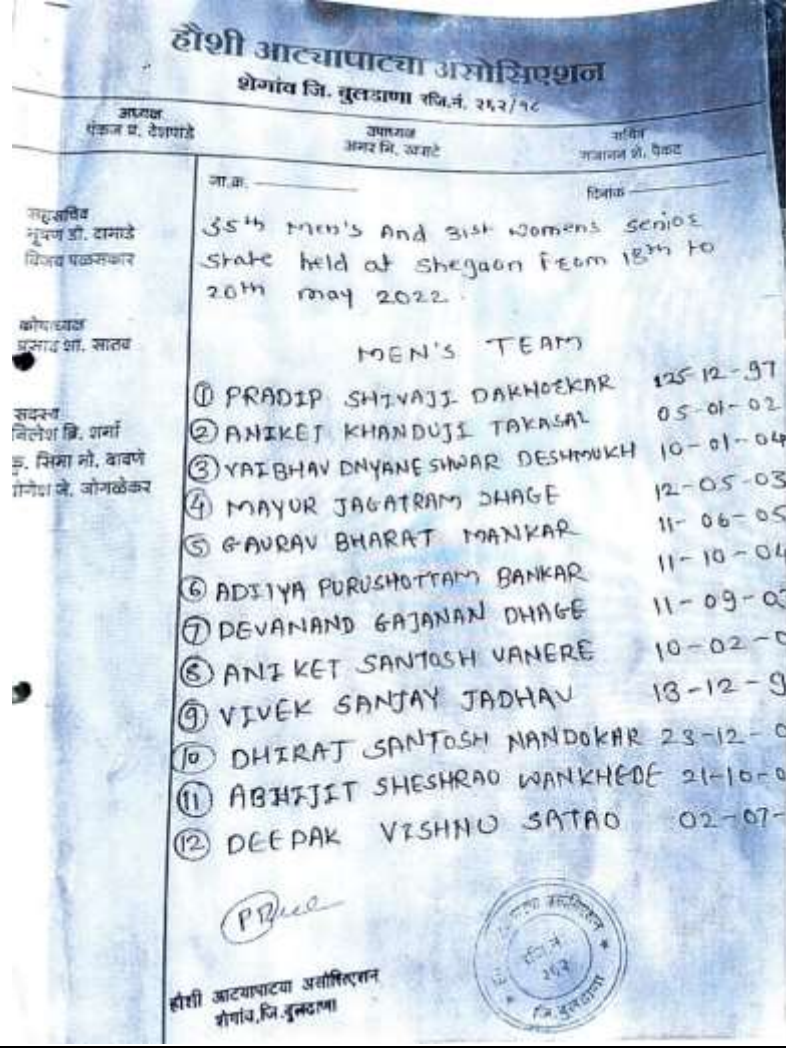 हौशी आट्यापाट्या असोसिएशन
शेगांव जि. बुलडाणा रजि.नं. २६२/१८
अध्यक्ष
पंकज प्र. देशपांडे
उपाध्यक्ष
अमर भि. खराटे
सचिव
गजानन शे. पैकट
जा.क्र.
दिनांक
सहसचिव
भूषण डी. दामाडे
विजय पळसकार
35th Men's And 31st Womens Senior
State held at Shegaon From 18th to
20th may 2022.
कोषाध्यक्ष
प्रसाद शा. सातव
MEN'S TEAM
सदस्य
निलेश ब्रि. शर्मा
कु. सिमा नो. वावणे
योगेश जे. जोगळेकर
① PRADIP SHIVAJI DAKHORKAR 125-12-97
② ANIKET KHANDUJI TAKASAL 05-01-02
③ VAIBHAV DNYANESHWAR DESHMUKH 10-01-04
④ MAYUR JAGATRAM DHAGE 12-05-03
⑤ GAURAV BHARAT MANKAR 11-06-05
⑥ ADITYA PURUSHOTTAM BANKAR 11-10-04
⑦ DEVANAND GAJANAN DHAGE 11-09-0
⑧ ANIKET SANTOSH VANERE 10-02-0
⑨ VIVEK SANJAY JADHAV 13-12-9
⑩ DHIRAJ SANTOSH NANDOKAR 23-12-0
⑪ ABHIJIT SHESHRAO WANKHEDE 21-10-0
⑫ DEEPAK VISHNU SATAO 02-07-
हौशी आटयापाटया असोसिएशन
शेगांव,जि.बुलढाणा
आट्यापाट्या असोसिएशन
रजि.नं.
२६२
जि.बुलढाणा